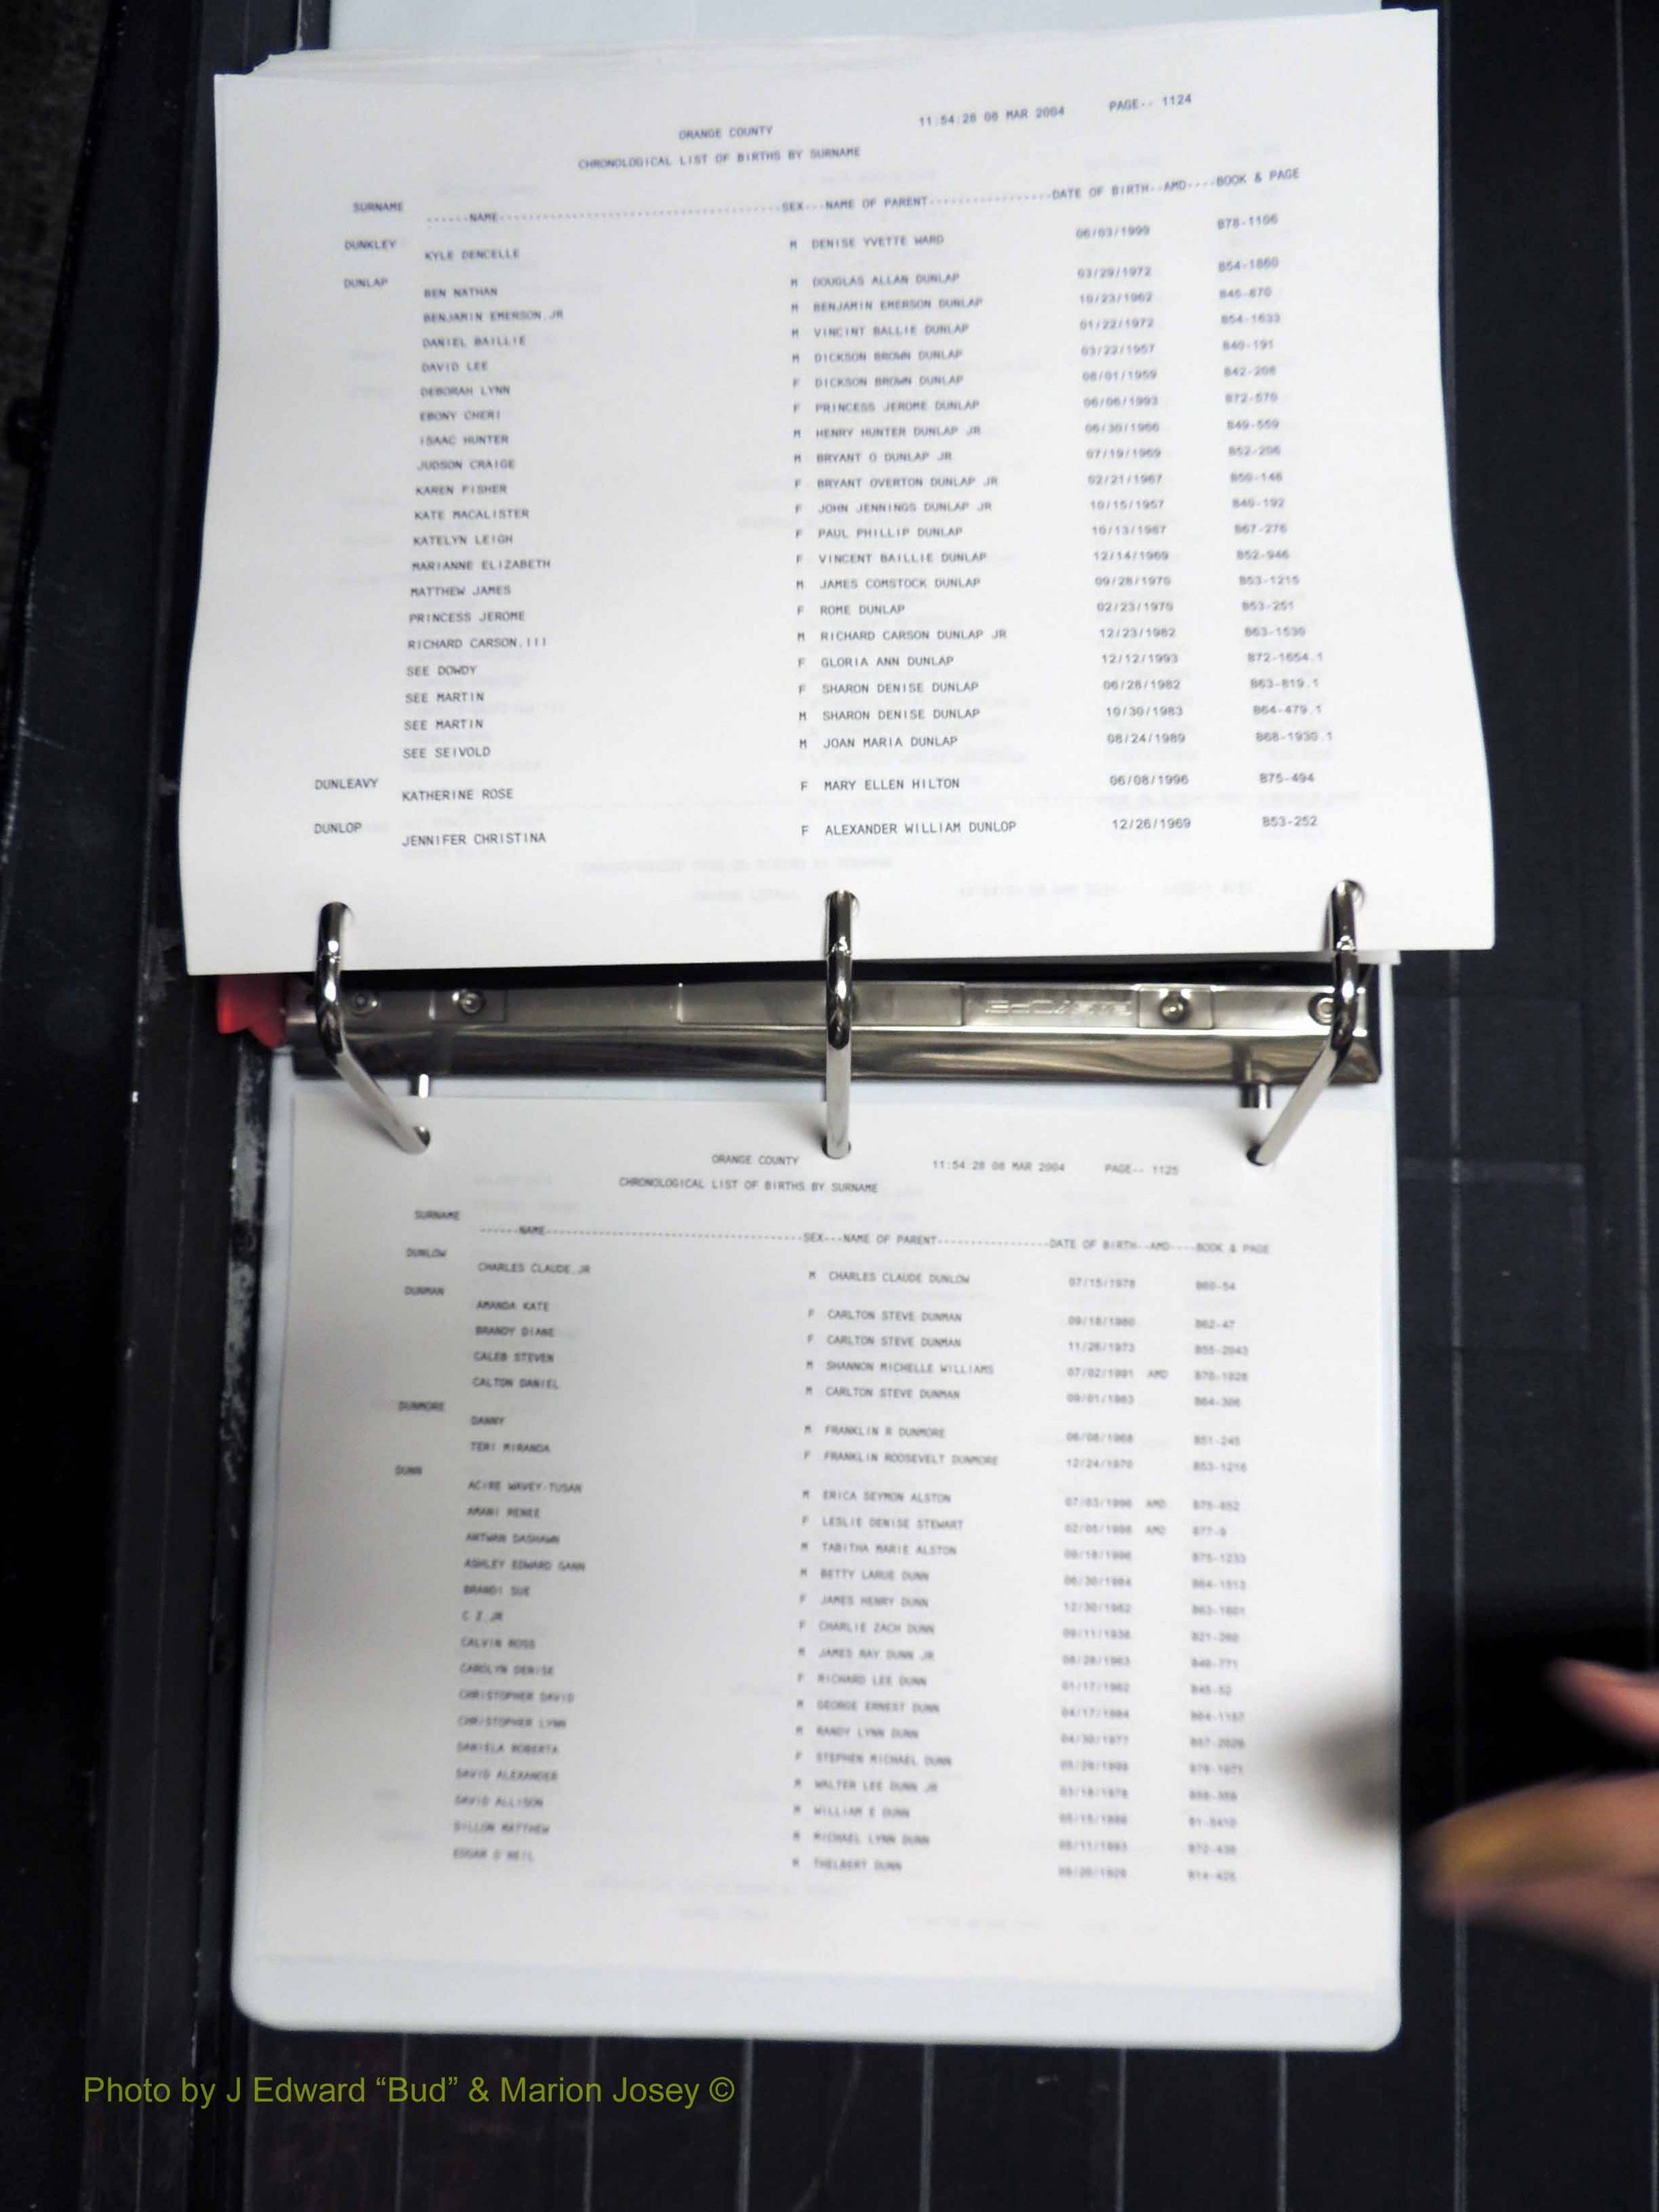 ORANGE COUNTY 11:54:28 08 MAR 2004 PAGE-- 1124
CHRONOLOGICAL LIST OF BIRTHS BY SURNAME
SURNAME ------NAME----------------------------------------SEX---NAME OF PARENT-----------------DATE OF BIRTH--AMD----BOOK & PAGE
DUNKLEY
KYLE DENCELLE M DENISE YVETTE WARD 06/03/1999 B78-1106
DUNLAP
BEN NATHAN M DOUGLAS ALLAN DUNLAP 03/29/1972 B54-1860
BENJAMIN EMERSON,JR M BENJAMIN EMERSON DUNLAP 10/23/1962 B45-870
DANIEL BAILLIE M VINCINT BALLIE DUNLAP 01/22/1972 B54-1633
DAVID LEE M DICKSON BROWN DUNLAP 03/22/1957 B40-191
DEBORAH LYNN F DICKSON BROWN DUNLAP 08/01/1959 B42-208
EBONY CHERI F PRINCESS JEROME DUNLAP 06/06/1993 B72-570
ISAAC HUNTER M HENRY HUNTER DUNLAP JR 06/30/1966 B49-559
JUDSON CRAIGE M BRYANT O DUNLAP JR 07/19/1969 B52-206
KAREN FISHER F BRYANT OVERTON DUNLAP JR 02/21/1967 B50-146
KATE MACALISTER F JOHN JENNINGS DUNLAP JR 10/15/1957 B40-192
KATELYN LEIGH F PAUL PHILLIP DUNLAP 10/13/1987 B67-276
MARIANNE ELIZABETH F VINCENT BAILLIE DUNLAP 12/14/1969 B52-946
MATTHEW JAMES M JAMES COMSTOCK DUNLAP 09/28/1970 B53-1215
PRINCESS JEROME F ROME DUNLAP 02/23/1970 B53-251
RICHARD CARSON,III M RICHARD CARSON DUNLAP JR 12/23/1982 B63-1530
SEE DOWDY F GLORIA ANN DUNLAP 12/12/1993 B72-1654.1
SEE MARTIN F SHARON DENISE DUNLAP 06/28/1982 B63-819.1
SEE MARTIN M SHARON DENISE DUNLAP 10/30/1983 B64-479.1
SEE SEIVOLD M JOAN MARIA DUNLAP 08/24/1989 B68-1930.1
DUNLEAVY
KATHERINE ROSE F MARY ELLEN HILTON 06/08/1996 B75-494
DUNLOP
JENNIFER CHRISTINA F ALEXANDER WILLIAM DUNLOP 12/26/1969 B53-252
ORANGE COUNTY 11:54:28 08 MAR 2004 PAGE-- 1125
CHRONOLOGICAL LIST OF BIRTHS BY SURNAME
SURNAME ------NAME----------------------------------------SEX---NAME OF PARENT-----------------DATE OF BIRTH--AMD----BOOK & PAGE
DUNLOW
CHARLES CLAUDE,JR M CHARLES CLAUDE DUNLOW 07/15/1978 B60-54
DUNMAN
AMANDA KATE F CARLTON STEVE DUNMAN 09/18/1980 B62-47
BRANDY DIANE F CARLTON STEVE DUNMAN 11/26/1973 B55-2043
CALEB STEVEN M SHANNON MICHELLE WILLIAMS 07/02/1991 AMD
CALTON DANIEL M CARLTON STEVE DUNMAN 09/01/1983
DUNMORE
DANNY M FRANKLIN R DUNMORE B51-245
TERI MIRANDA F FRANKLIN ROOSEVELT DUNMORE 12/24/1970 B53-1216
DUNN
ACIRE WAVEY-TUSAN M ERICA SEYMON ALSTON 07/03/1996 AMD B75-652
AMANI RENEE F LESLIE DENISE STEWART AMD
ANTWAN DASHAWN M TABITHA MARIE ALSTON B75-1233
ASHLEY EDWARD GANN M BETTY LARUE DUNN 06/30/1984
BRANDI SUE F JAMES HENRY DUNN 12/30/1982
C Z,JR F CHARLIE ZACH DUNN
CALVIN ROSS M JAMES RAY DUNN JR
CAROLYN DENISE F RICHARD LEE DUNN 01/17/1962 B45-52
CHRISTOPHER DAVID M GEORGE ERNEST DUNN 04/17/1984
CHRISTOPHER LYNN M RANDY LYNN DUNN 04/30/1977
DANIELA ROBERTA F STEPHEN MICHAEL DUNN
DAVID ALEXANDER M WALTER LEE DUNN JR
DAVID ALLISON M WILLIAM E DUNN
DILLON MATTHEW M MICHAEL LYNN DUNN
EDGAR O'NEIL M THELBERT DUNN
Photo by J Edward “Bud” & Marion Josey ©